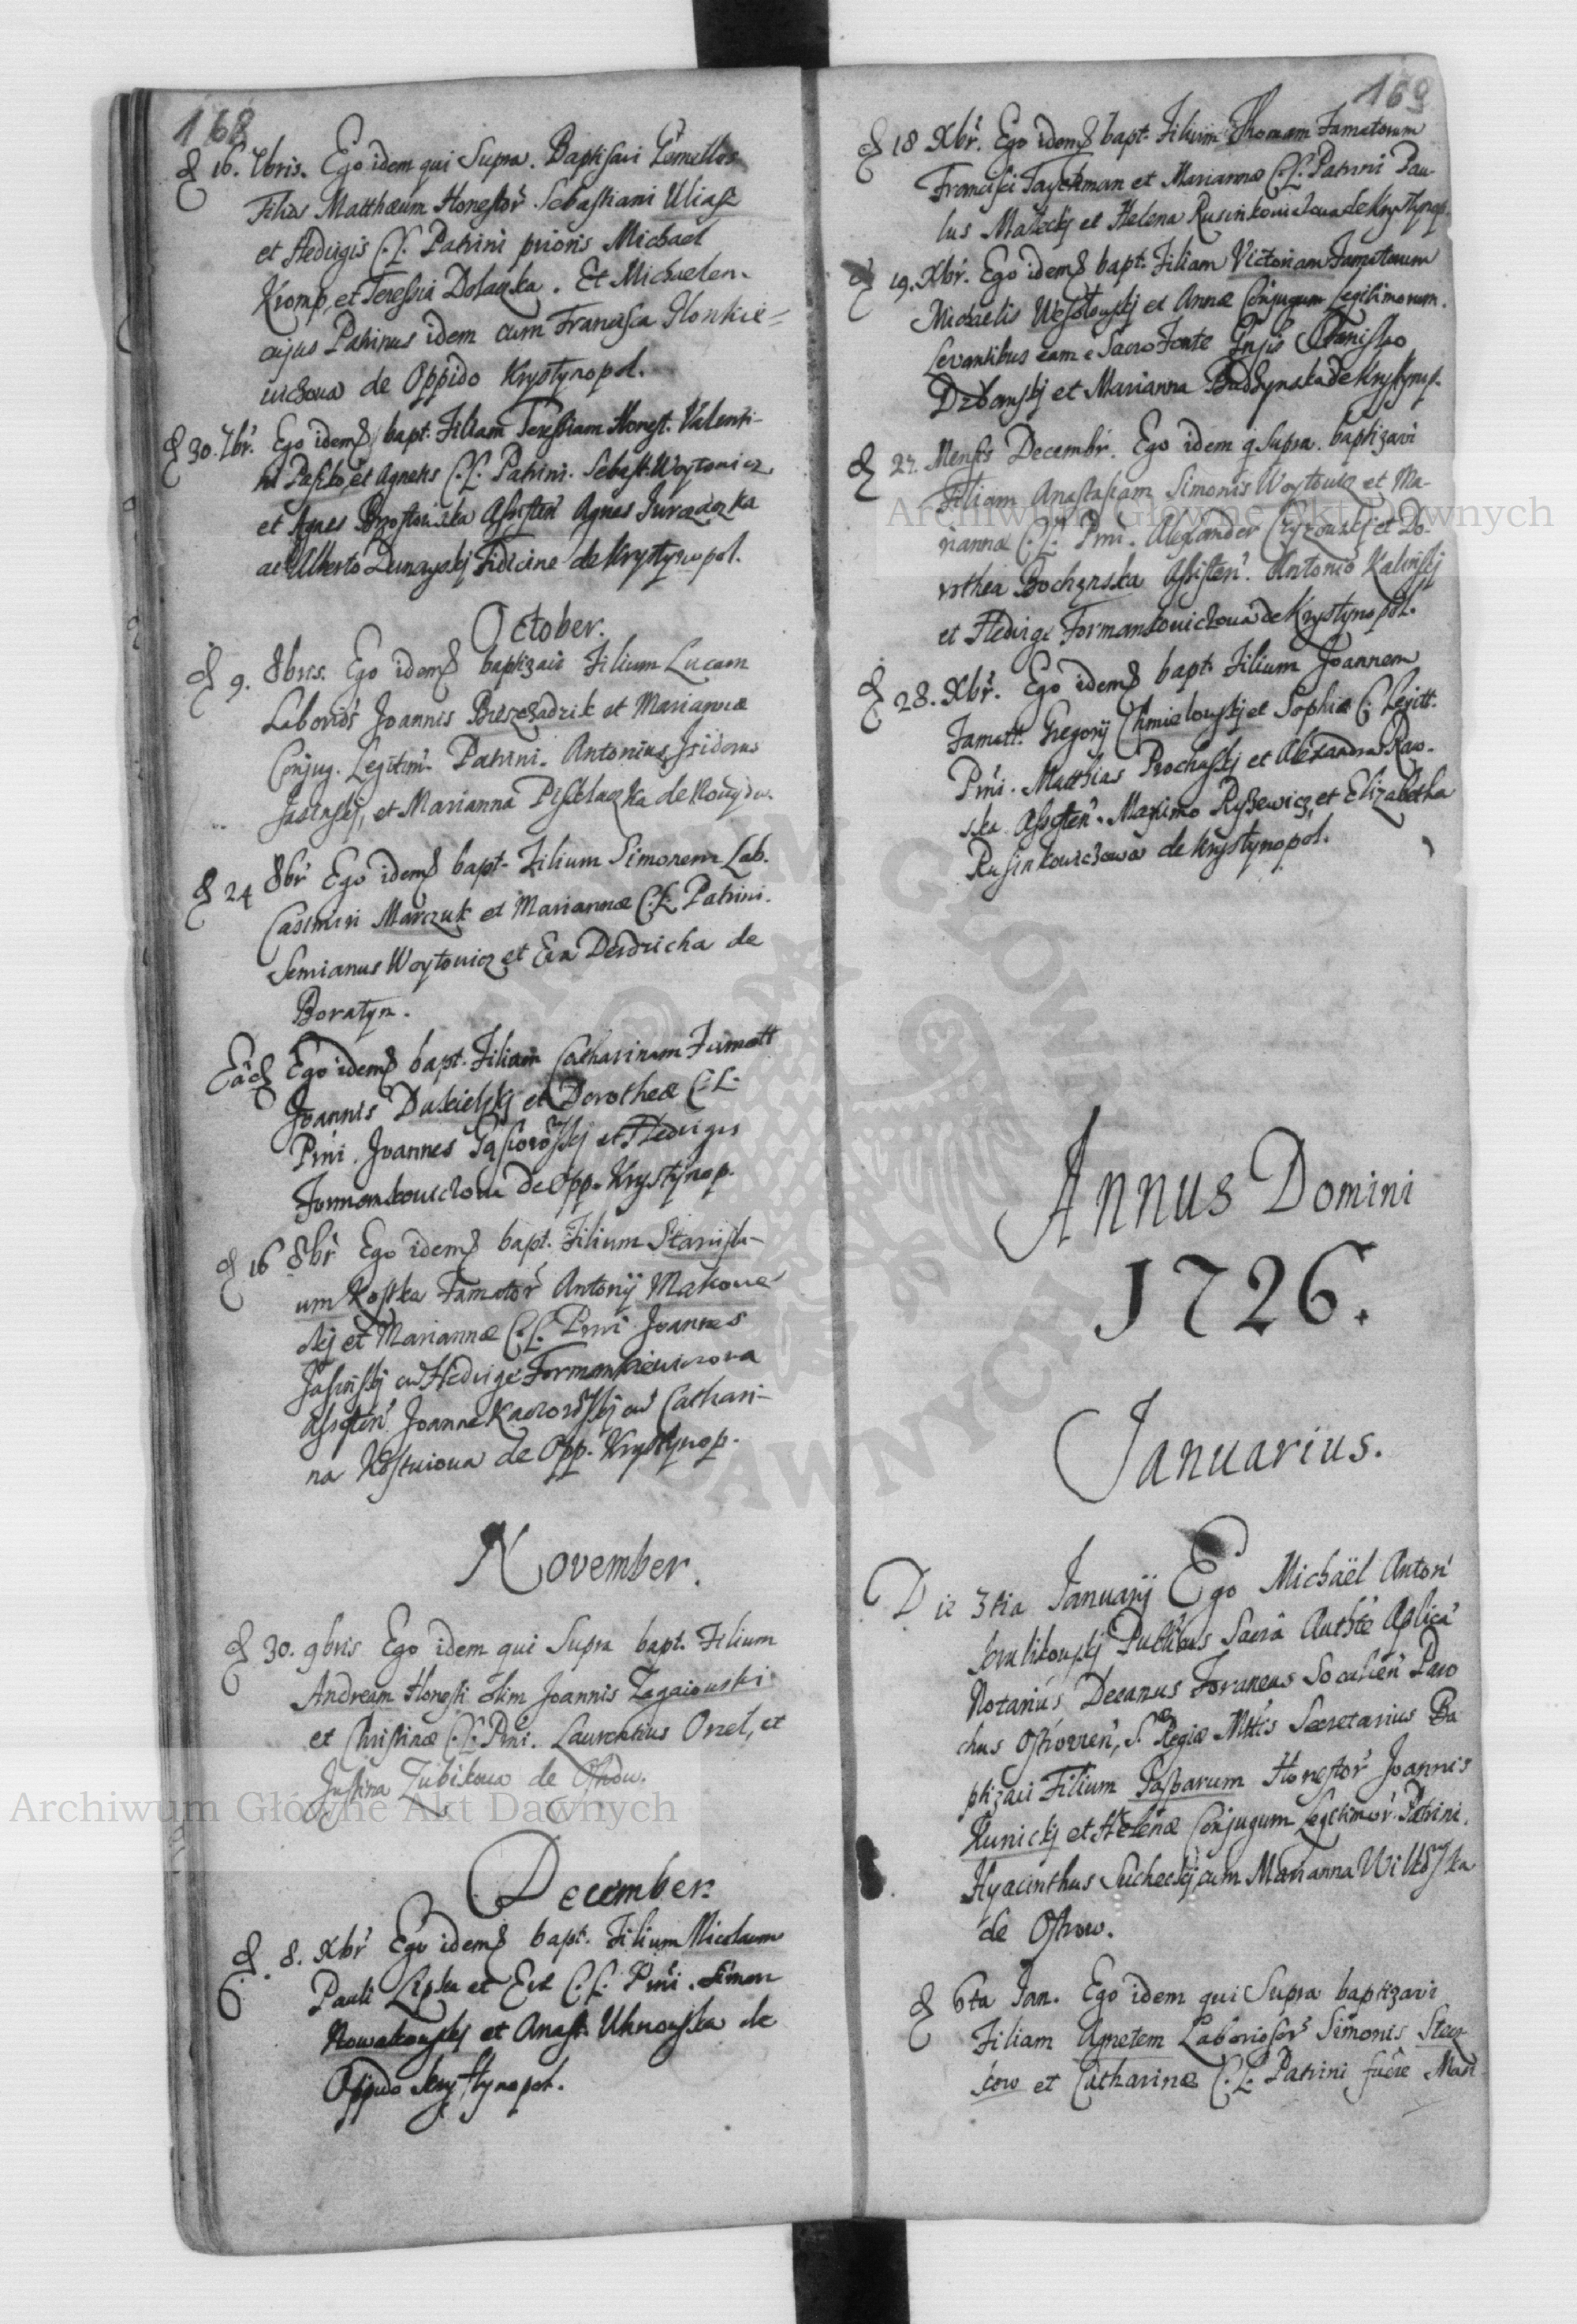 168
d 16. 7bris. Ego idem qui Supra. Baptisavi Gemellos
Filios Matthæum Honestor̃ Sebastiani Uliasz
et Hedvigis C. L. Patrini prioris Michael
Kromp, et Teressia Dolaczka. Et Michaelem
cujus Patrinus idem cum Francisca Ilonkie=
wiczowa de Oppido Krystynopol.
d 30. 7br̃. Ego idem q̃ bapt. Filiam Teressiam Honest. Valenti-
ni Paszko, et Agnetis C. L. Patrini. Sebast. Woytowicz
et Agnes Brzostowska Assisteñ Agnes Jurczaczka
ac Alberto Dunayskj Fidicine de Krystynopol.
October.
d 9. 8bris. Ego idem q̃ baptizavi Filium Lucam
Laborios̃ Joannis Bieszczadzik et Mariannæ
Conjug. Legitim̃. Patrini. Antonius Isidorus
Jasinskj, et Marianna
d 24 8br̃ Ego idem q̃ bapt. Filium Simonem Lab.
Casimiri Marczuk et Mariannæ C. L. Patrini.
Semianus Woytowicz et Eva Derdzicha de
Boratyn.
Eãd Ego idem q̃ bapt. Filiam Catharinam Famatt
Joannis et Dorotheæ C. L.
Prñi. Joannes et Hedvigis
Formankowiczowa de Opp. Krystynop.
d 16 8br̃ Ego idem q̃ bapt. Filium Stanisla-
um Kostka Famator̃ Antonij Makowe
ckj et Mariannæ C. L. Prñi Joannes
Jasinskj cũ Hedvige Formankiewiczowa
Assisteñ Joanne cũ Cathari-
na de Opp. Krystynop.
November.
d 30. 9bris Ego idem qui Supra bapt. Filium
Andream Honesti olim Joannis Zagaiowski
et Christinæ C. L. Prñi. Laurentius Orzeł, et
Justina Zubikowa de Ostrow.
December.
d. 8. Xbr̃ Ego idem q̃ bapt. Filium Nicolaum
Pauli Lipka et Evæ C. L. Prñi. Simon
Nowakowskj et Anast. Uhnowska de
Oppido Krystynopol.
169
d 18 Xbr̃. Ego idem q̃ bapt. Filium Thomam Famatorum
Francisci Taychman et Mariannæ C. L. Patrini Pau
lus Małeckj et Helena Rusinkowiczowa de Krystynop.
d 19. Xbr̃. Ego idem q̃ bapt. Filiam Victoriam Famatorum
Michaelis Wesołowskj et Annæ Conjugum Legitimorum.
Levantibus eam e Sacro Fonte Stanislao
Drbanskj et Marianna Budzynska de Krystynop.
d 27. Mensis Decembr̃. Ego idem q̃ supra. baptizavi
Filiam Anastasiam Simonis Woytowicz et Ma-
riannæ C. L. Prñi. Alexander Czyzowskj et Do-
rothea Bochenska Assisteñ. Antonio Kalinskj
et Hedvige Formankowiczowa de Krystynopol.
d 28. Xbr̃. Ego idem q̃ bapt. Filium Joannem
Famatt. Gregorij Chmielowskj et Sophiæ C. Legitt.
Prñi. Matthias Prochaskj et Alexandra Raw-
ska Assisteñ. Maximo Ryszewicz, et Elizabetha
Rusinkowiczowa de Krystynopol.
Annus Domini
1726.
Januarius.
Die 3tia Januarij Ego Michaël Anton̄
Publicus Sacrâ Authte Aplicâ
Notarius Decanus Foraneus Socalień Paro
chus Ostrovień, S. Regiæ Mttis Secretarius Ba
ptizavi Filium Gasparum Honestor̃ Joannis
Kunickj et Helenæ Conjugum Legitimor̃. Patrini.
Hyacinthus Sucheckj cum Marianna
de Ostrow.
d 6ta Jan. Ego idem qui Supra baptizavi
Filiam Agnetem Laboriosor̃ Simonis Stecz
kow et Catharinæ C. L. Patrini fuêre Mart
Archiwum Główne Akt Dawnych
Archiwum Główne Akt Dawnych